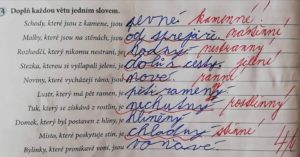 Doplň každou větu jedním slovem.
Schody, které jsou z kamene, jsou pevné kamenné!
Malby, které jsou na stěnách, jsou od sprejaře nástěnné!
Rozhodčí, který nikomu nestraní, je hodný nestranný
Stezka, kterou si vyšlapali jeleni, je dobrá cesta jelení!
Noviny, které vycházejí ráno, jsou nové. ranní
Lustr, který má pět ramen, je pětiramenný
Tuk, který se získává z rostlin, je nechutný rostlinný!
Domek, který byl postaven z hlíny, je hliněný
Místo, které poskytuje stín, je chladný stinné
Bylinky, které pronikavě voní, jsou voňavé.